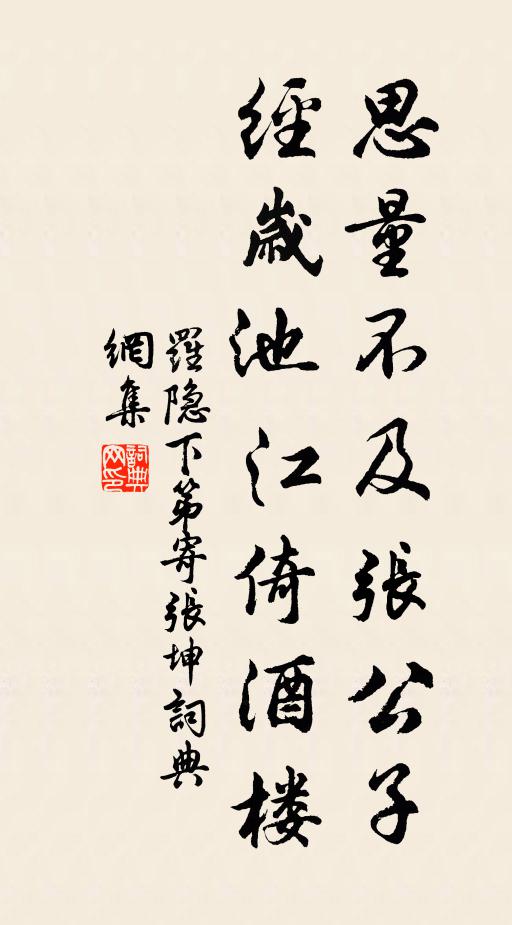 思量不及張公子
經歲池江倚酒楼
羅隐下第寄張坤詞典
網集
詞典网印